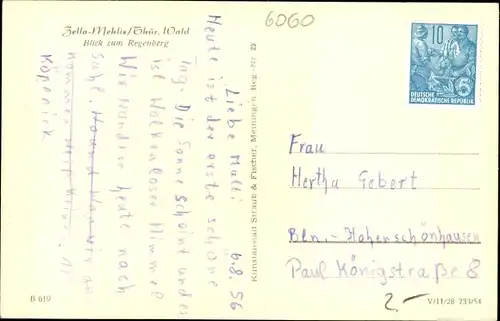 Zella-Mehlis/Thür. Wald
Blick zum Regenberg
6060
Liebe Mutti 6.8.56
Heute ist der erste schöne
Tag. Die Sonne scheint und es
ist Wolkenloser Himmel
Wir wandern heute nach
Suhl.
Köpenick
Kunstanstalt Straub & Fischer, Meiningen Reg.-Nr. 29
10
DEUTSCHE
DEMOKRATISCHE REPUBLIK
Frau
Hertha Gebert
Bln.-Hohenschönhausen
Paul Königstraße 8
2-
B 619
V/11/28 233/54